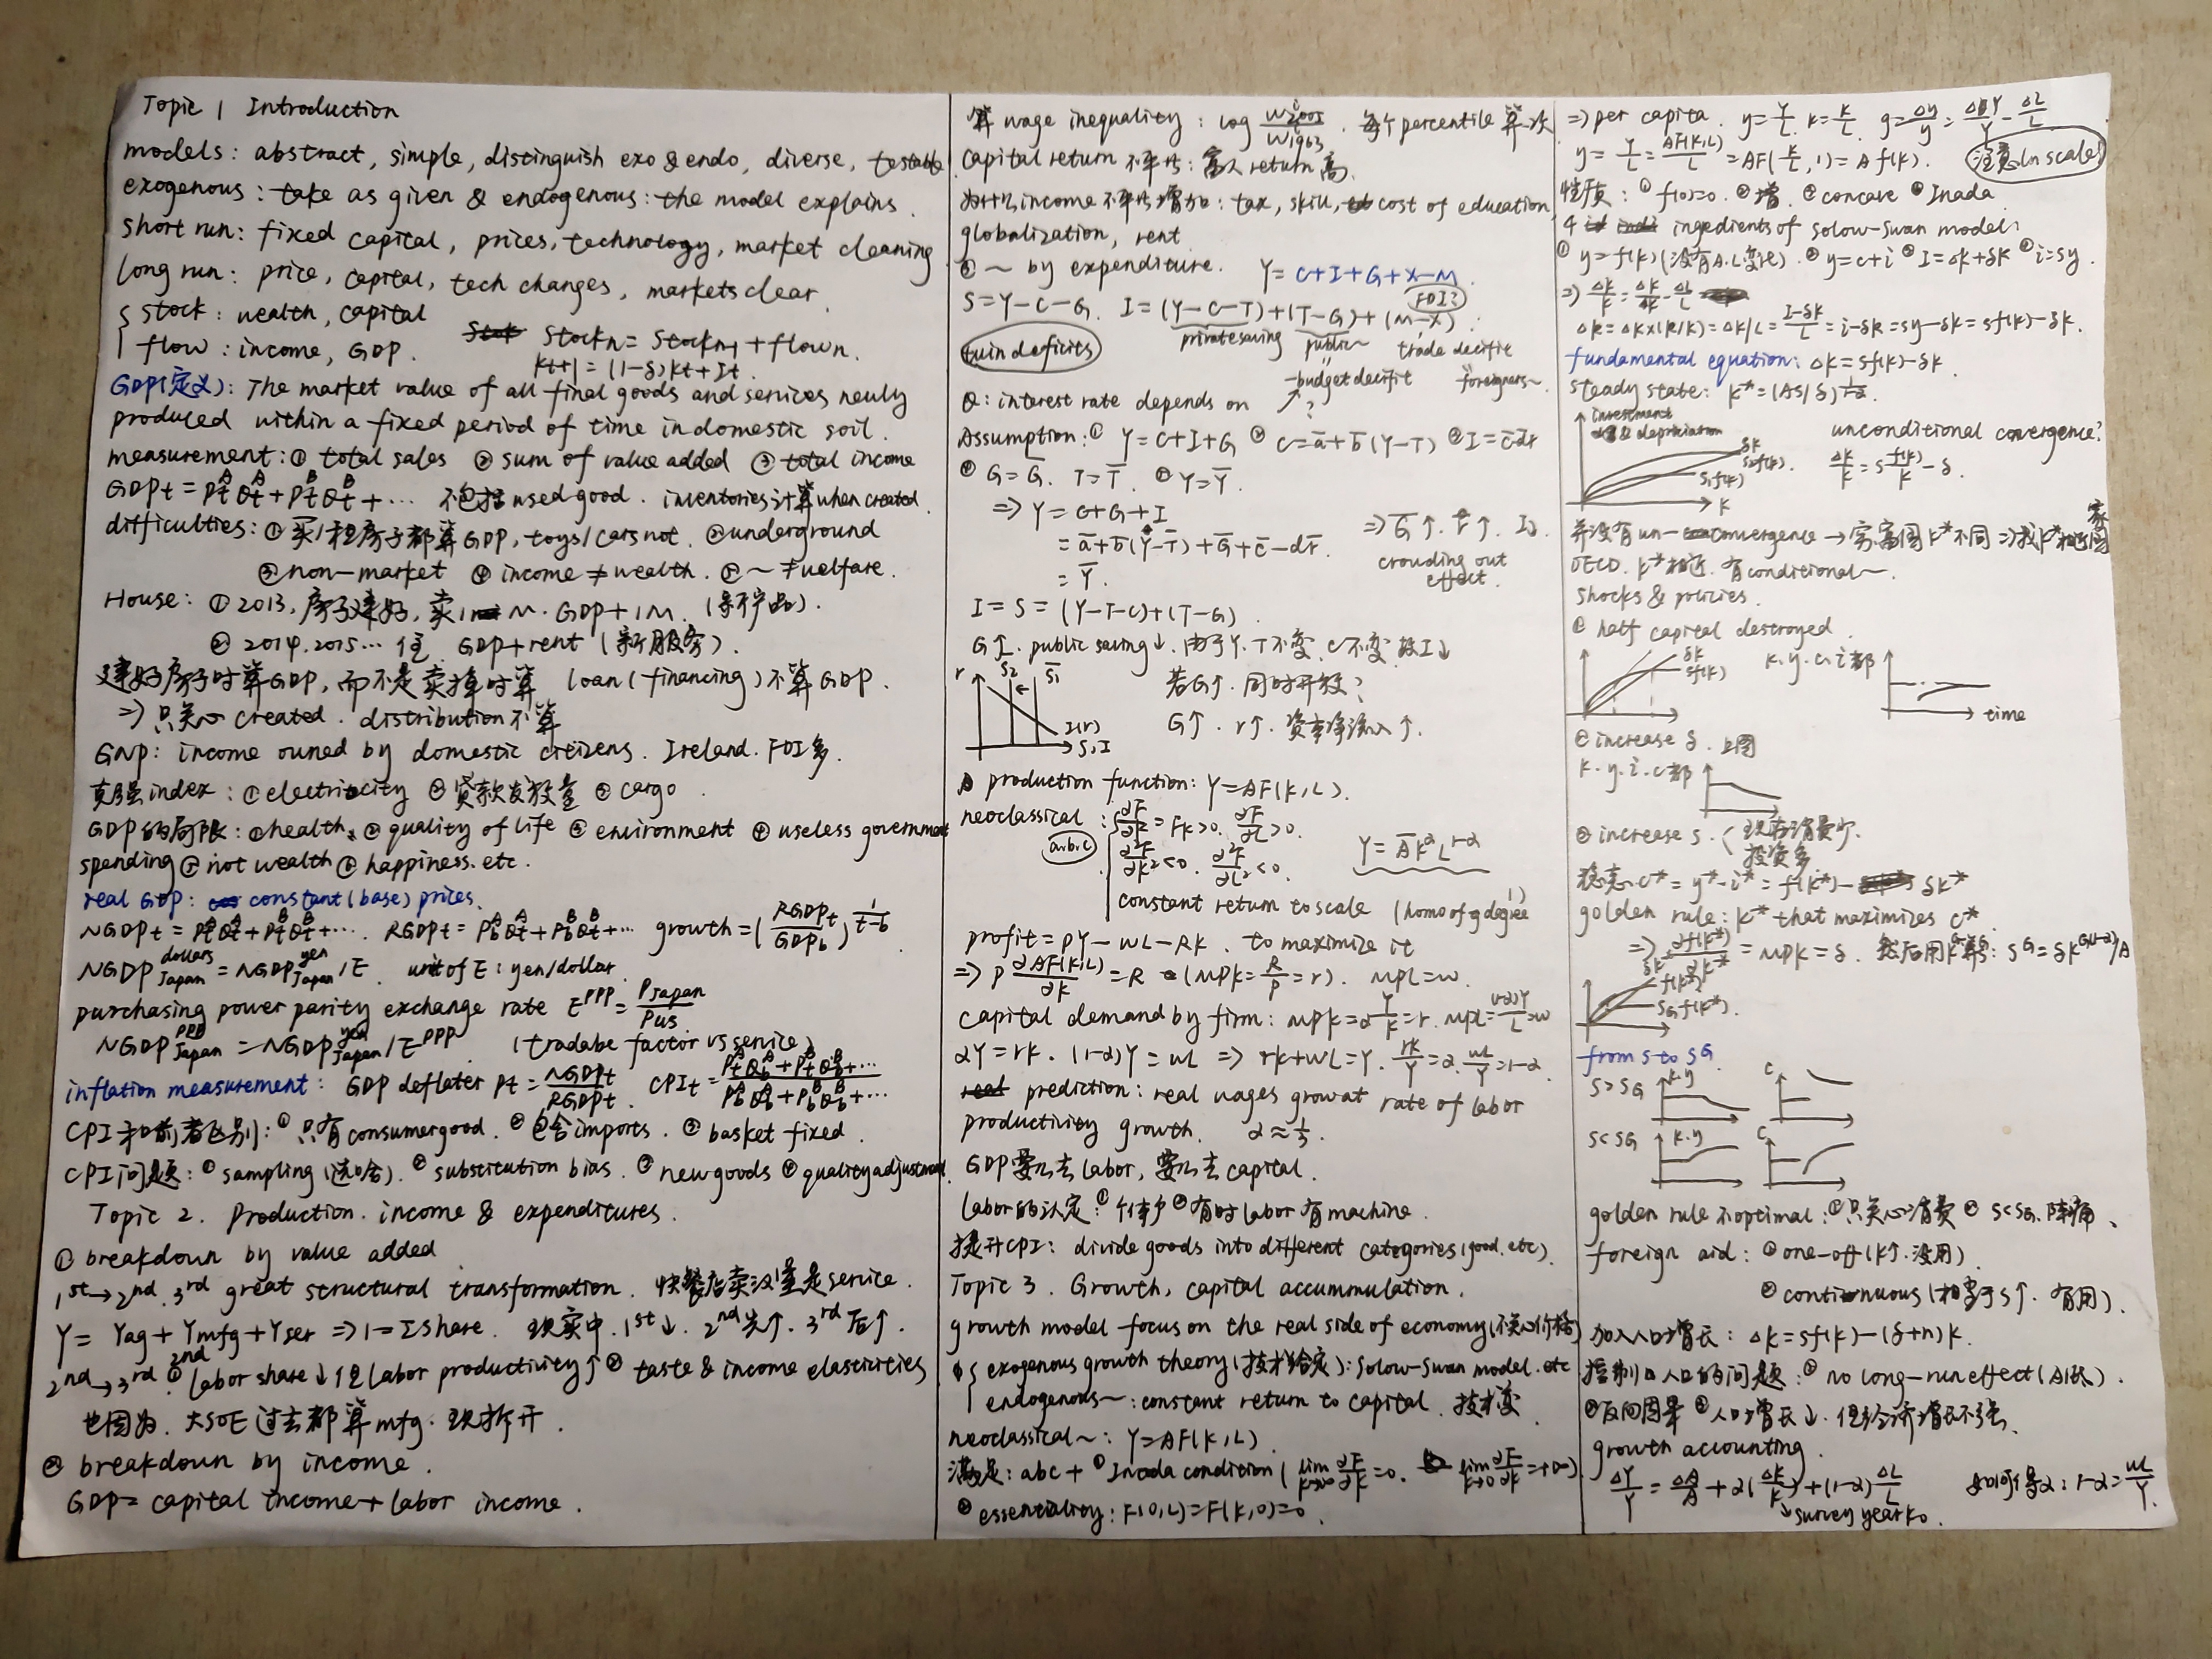 Topic 1 Introduction
models: abstract, simple, distinguish exo & endo, diverse, testable
exogenous: take as given & endogenous: the model explains.
short run: fixed capital, prices, technology, market cleaning
long run: price, capital, tech changes, markets clear.
stock: wealth, capital
flow: income, GDP. Stockn = Stockn-1 + flown.
Kt+1 = (1-δ)Kt+It.
GDP(定义): The market value of all final goods and services newly
produced within a fixed period of time in domestic soil.
measurement: ① total sales ② sum of value added ③ total income
GDPt = PtᴬQtᴬ + PtᴮQtᴮ + ... 不包括used good. inventories计算when created
difficulties: ① 买/租房子都算GDP, toys/cars not. ② underground
③ non-market ④ income ≠ wealth. ⑤ ~ ≠ welfare.
House: ① 2013, 房子建好, 卖1M. GDP+1M. (新产品).
② 2014. 2015... 住 GDP+rent (新服务).
建好房子时算GDP, 而不是卖掉时算 loan (financing) 不算GDP.
=> 只关心 created. distribution不算
GNP: income owned by domestic citizens. Ireland. FDI多.
克强index: ① electricity ② 贷款发放量 ③ cargo
GDP的局限: ① health ② quality of life ③ environment ④ useless government
spending ⑤ not wealth ⑥ happiness. etc.
real GDP: constant (base) prices.
NGDPt = PtᴬQtᴬ + PtᴮQtᴮ + .... RGDPt = PbᴬQtᴬ + PbᴮQtᴮ + ... growth = (RGDPt/GDPb)^(1/(t-b))
NGDP dollars Japan = NGDP yen Japan / E. unit of E: yen/dollar
purchasing power parity exchange rate Eᴾᴾᴾ = PJapan/Pus.
NGDP PPP Japan = NGDP yen Japan / Eᴾᴾᴾ. (tradabe factor vs service)
inflation measurement: GDP deflater Pt = NGDPt/RGDPt. CPIt = (PtᴬQbᴬ + PtᴮQbᴮ + ...)/(PbᴬQbᴬ + PbᴮQbᴮ + ...)
CPI和前者区别: ① 只有consumer good. ② 包含imports. ③ basket fixed.
CPI问题: ① sampling (选啥). ② substitution bias. ③ new goods ④ quality adjustment.
Topic 2. Production. income & expenditures.
① breakdown by value added
1st→2nd. 3rd great structural transformation. 快餐店卖汉堡是service.
Y = Yag + Ymfg + Yser => 1 = Σshare. 现实中. 1st↓. 2nd先↑. 3rd后↑.
2nd→3rd ① 2nd labor share↓但labor productivity↑ ② taste & income elasticities
也因为. 大SOE过去都算mfg. 现拆开.
② breakdown by income.
GDP = capital income + labor income.
算wage inequality: log W2005/W1963. 每个percentile算一次
capital return 不平均: 富人return高.
为什么income不平均增加: tax, skill, cost of education,
globalization, rent
③ ~ by expenditure. Y = C+I+G+X-M
S = Y-C-G. I = (Y-C-T)+(T-G)+(M-X). FDI?
twin deficits private saving public~ trade decifit
-budget decifit foreigners~
Q: interest rate depends on ?
Assumption: ① Y = C+I+G ② C = a̅+b̅(Y-T) ③ I = c̅-dr
④ G = G̅. T = T̅. ⑤ Y = Y̅.
=> Y = C+G+I
= a̅+b̅(Y̅-T̅)+G̅+c̅-dr. => G̅↑. r↑. I↓.
= Y̅. crowding out effect.
I = S = (Y-T-C)+(T-G).
G↑. public saving↓. 由于Y. T不变. C不变 故I↓
r S2 S̅1 若G↑. 同时开放?
I(r) G↑. r↑. 资本净流入↑.
S,I
production function: Y = AF(K,L).
neoclassical: ∂F/∂K = FK>0. ∂F/∂L>0.
a.b.c ∂²F/∂K²<0. ∂²F/∂L²<0. Y = A̅KᵅL¹⁻ᵅ
constant return to scale (homo of 1 degree)
profit = PY-WL-RK. to maximize it
=> P ∂AF(K,L)/∂K = R (MPK = R/P = r). MPL = w.
capital demand by firm: MPK = α Y/K = r. MPL = (1-α)Y/L = w
αY = rK. (1-α)Y = wL => rK+wL = Y. rK/Y = α. wL/Y = 1-α.
prediction: real wages grow at rate of labor
productivity growth. α ≈ 1/3.
GDP要么去labor, 要么去capital.
labor的认定: ① 个体户 ② 有时labor有machine.
提升CPI: divide goods into different categories (good. etc).
Topic 3. Growth, capital accummulation.
growth model focus on the real side of economy (不关心价格)
exogenous growth theory (技术给定): Solow-Swan model. etc
endogenous~: constant return to capital. 技术变
neoclassical~: Y = AF(K,L)
满足: abc + ① Inada condition (lim K→∞ ∂F/∂K = 0. lim K→0 ∂F/∂K = +∞)
② essentiality: F(0,L) = F(K,0) = 0.
=> per capita. y = Y/L. k = K/L. g = Δy/y = ΔY/Y - ΔL/L
y = Y/L = AF(K,L)/L = AF(K/L, 1) = Af(k). 注意ln scale
性质: ① f(0)=0. ② 增. ③ concave ④ Inada
4 ingredients of Solow-Swan model:
① y = f(k) (没有A.L变化). ② y = c+i ③ I = ΔK+δK ④ i = sy.
=> Δk/k = ΔK/K - ΔL/L
Δk = ΔK×(k/K) = ΔK/L = (I-δK)/L = i-δk = sy-δk = sf(k)-δk.
fundamental equation: Δk = sf(k)-δk
steady state: k* = (As/δ)^(1/(1-α))
investment
depriciation unconditional convergence?
δk s2f(k). s1f(k) Δk/k = s f(k)/k - δ.
k
并没有un-convergence → 穷富国k*不同 => 找k*相近国家
OECD. k*相近. 有conditional~.
shocks & policies.
① half capital destroyed.
δk sf(k) k. y. c. i都
time
② increase δ. 上图
k. y. i. c都
③ increase s. (现在消费少. 投资多
稳态c* = y*-i* = f(k*)- δk*
golden rule: k* that maximizes c*.
=> ∂f(k*)/∂k* = MPK = δ. 然后用kᴳ算sᴳ: sᴳ = δkᴳ⁽¹⁻ᵅ⁾/A
δk* f(k*) sGf(k*).
from s to sG
s>sG k.y c
s<sG k.y c
golden rule 不optimal: ① 只关心消费 ② s<sG. 阵痛
foreign aid: ① one-off (k↑. 没用)
② continuous (相当于s↑. 有用).
加入人口增长: Δk = sf(k)-(δ+n)k.
控制人口的问题: ① no long-run effect
② 反向因果 ③ 人口增长↓. 但经济增长不强.
growth accounting.
ΔY/Y = ΔA/A + α(ΔK/K) + (1-α)ΔL/L 如何得α: 1-α = wL/Y.
survey year K0.